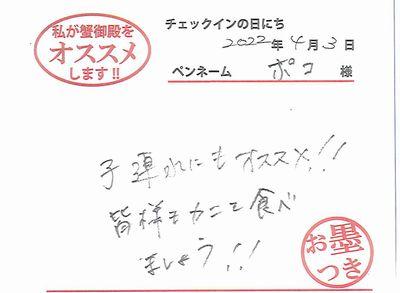 私が蟹御殿を
オススメ
します!!
チェックインの日にち
2022年4月3日
ペンネーム ポコ 様
子連れにもオススメ!!
皆様もカニを食べ
ましょう!!
お墨
つき